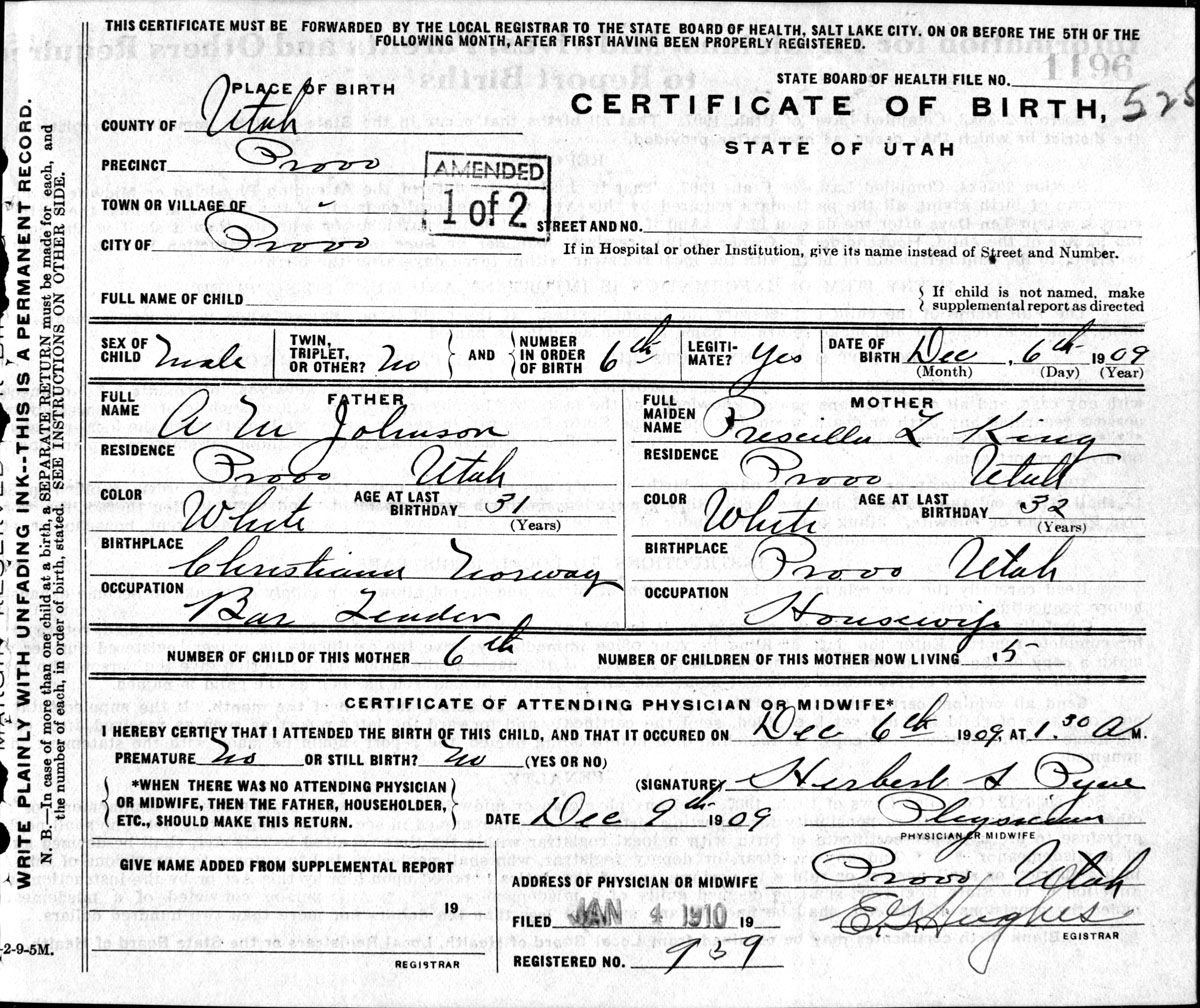 THIS CERTIFICATE MUST BE FORWARDED BY THE LOCAL REGISTRAR TO THE STATE BOARD OF HEALTH, SALT LAKE CITY. ON OR BEFORE THE 5TH OF THE
FOLLOWING MONTH, AFTER FIRST HAVING BEEN PROPERLY REGISTERED.
1196
STATE BOARD OF HEALTH FILE NO.
PLACE OF BIRTH
CERTIFICATE OF BIRTH, 525
COUNTY OF Utah
STATE OF UTAH
PRECINCT Provo
AMENDED
1 of 2
TOWN OR VILLAGE OF -
STREET AND NO.
CITY OF Provo
If in Hospital or other Institution, give its name instead of Street and Number.
FULL NAME OF CHILD
{ If child is not named, make
supplemental report as directed
SEX OF CHILD Male
TWIN, TRIPLET, OR OTHER? No
AND
NUMBER IN ORDER OF BIRTH 6th
LEGITI-MATE? Yes
DATE OF BIRTH Dec, 6th 1909
(Month) (Day) (Year)
FATHER
FULL NAME A M Johnson
RESIDENCE Provo Utah
COLOR White
AGE AT LAST BIRTHDAY 31
(Years)
BIRTHPLACE Christiana Norway
OCCUPATION Bar Tender
MOTHER
FULL MAIDEN NAME Priscilla L King
RESIDENCE Provo Utah
COLOR White
AGE AT LAST BIRTHDAY 32
(Years)
BIRTHPLACE Provo Utah
OCCUPATION Housewife
NUMBER OF CHILD OF THIS MOTHER 6th
NUMBER OF CHILDREN OF THIS MOTHER NOW LIVING. 5
CERTIFICATE OF ATTENDING PHYSICIAN OR MIDWIFE*
I HEREBY CERTIFY THAT I ATTENDED THE BIRTH OF THIS CHILD, AND THAT IT OCCURED ON Dec 6th 1909 AT 1.30 A M.
PREMATURE No OR STILL BIRTH? No (YES OR NO)
*WHEN THERE WAS NO ATTENDING PHYSICIAN
OR MIDWIFE, THEN THE FATHER, HOUSEHOLDER,
ETC., SHOULD MAKE THIS RETURN.
(SIGNATURE) Herbert S Pyne
DATE Dec 9th 1909 Physician
PHYSICIAN OR MIDWIFE
GIVE NAME ADDED FROM SUPPLEMENTAL REPORT
19
REGISTRAR
ADDRESS OF PHYSICIAN OR MIDWIFE Provo Utah
FILED JAN 4 1910 19
E. G. Hughes
REGISTRAR
REGISTERED NO. 939
-2-9-5M.
WRITE PLAINLY WITH UNFADING INK--THIS IS A PERMANENT RECORD.
N. B.—In case of more than one child at a birth, a SEPARATE RETURN must be made for each, and
the number of each, in order of birth, stated. SEE INSTRUCTIONS ON OTHER SIDE.